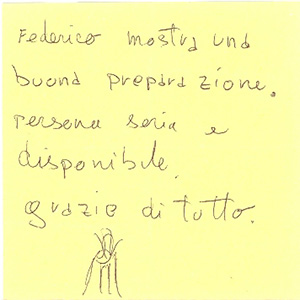 Federico mostra una
buona preparazione.
persona seria e
disponibile.
grazie di tutto.